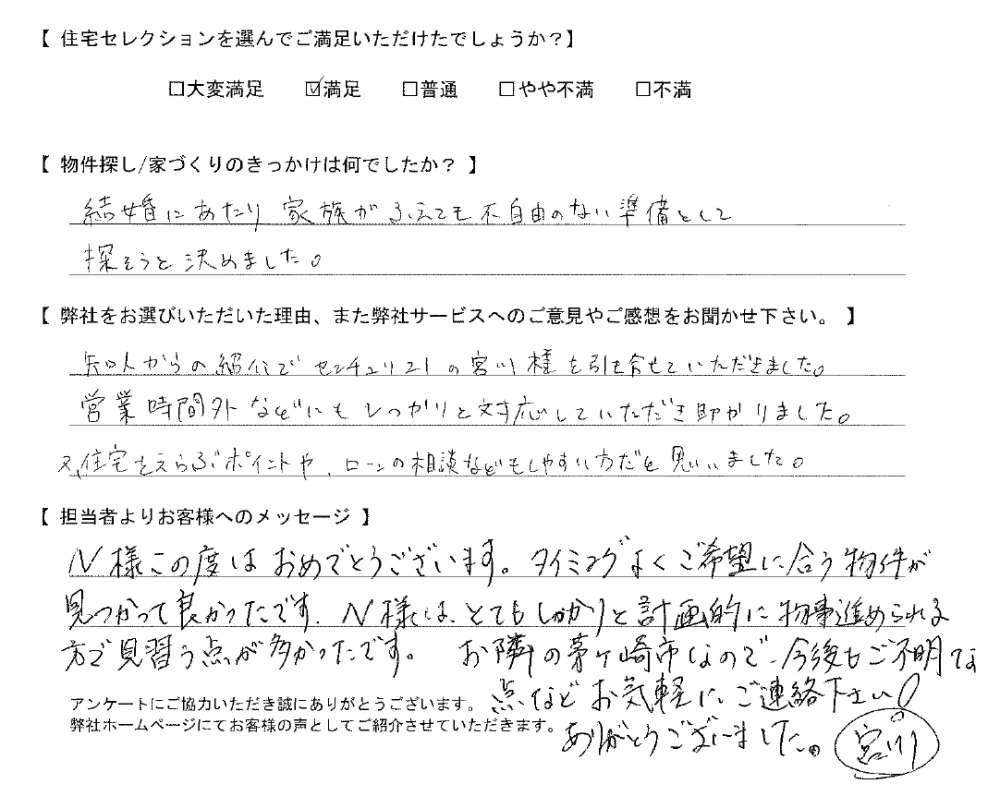 【 住宅セレクションを選んでご満足いただけたでしょうか？】
□大変満足 ☑満足 □普通 □やや不満 □不満
【 物件探し/家づくりのきっかけは何でしたか？ 】
結婚にあたり 家族がふえても不自由のない準備として
探そうと決めました。
【 弊社をお選びいただいた理由、また弊社サービスへのご意見やご感想をお聞かせ下さい。 】
知人からの紹介でセンチュリ21の宮川様を引き合せていただきました。
営業時間外などにもしっかりと対応していただき助かりました。
又、住宅をえらぶポイントや、ローンの相談などもしやすい方だと思いました。
【 担当者よりお客様へのメッセージ 】
N様この度はおめでとうございます。タイミングよくご希望に合う物件が
見つかって良かったです。N様は、とてもしっかりと計画的に物事進められる
方で見習う点が多かったです。 お隣の茅ケ崎市なので、今後もご不明な
点などお気軽にご連絡下さい！
アンケートにご協力いただき誠にありがとうございます。
弊社ホームページにてお客様の声としてご紹介させていただきます。
ありがとうございました。 宮川